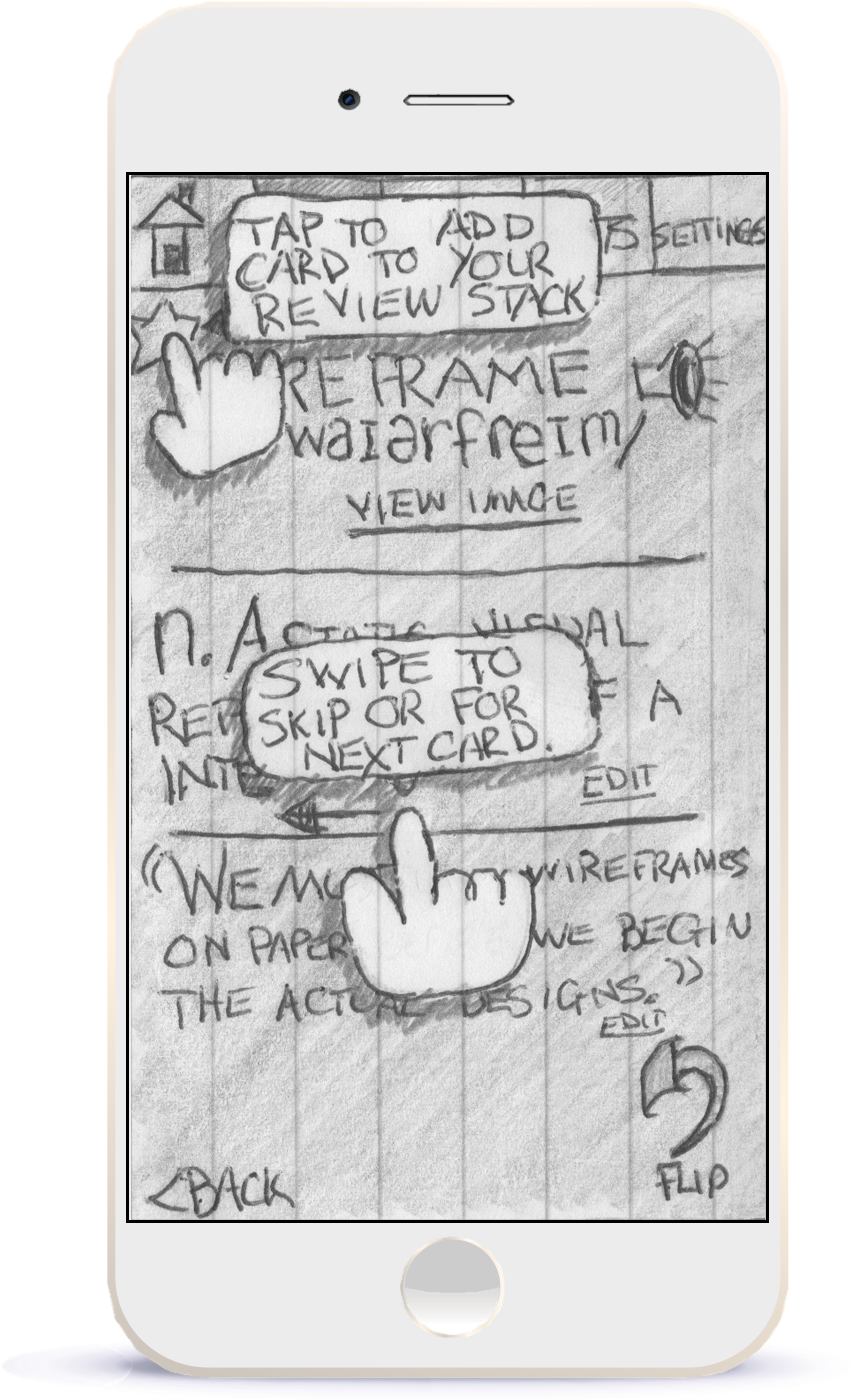 TAP TO ADD
CARD TO YOUR
REVIEW STACK
TS SETTINGS
REFRAME
waIarfreIm/
VIEW IMAGE
n. A STATIC VISUAL
SWIPE TO
SKIP OR FOR
NEXT CARD.
REP F A
INTE
EDIT
"WE MU WIREFRAMES
ON PAPER WE BEGIN
THE ACTUAL DESIGNS."
EDIT
FLIP
<BACK